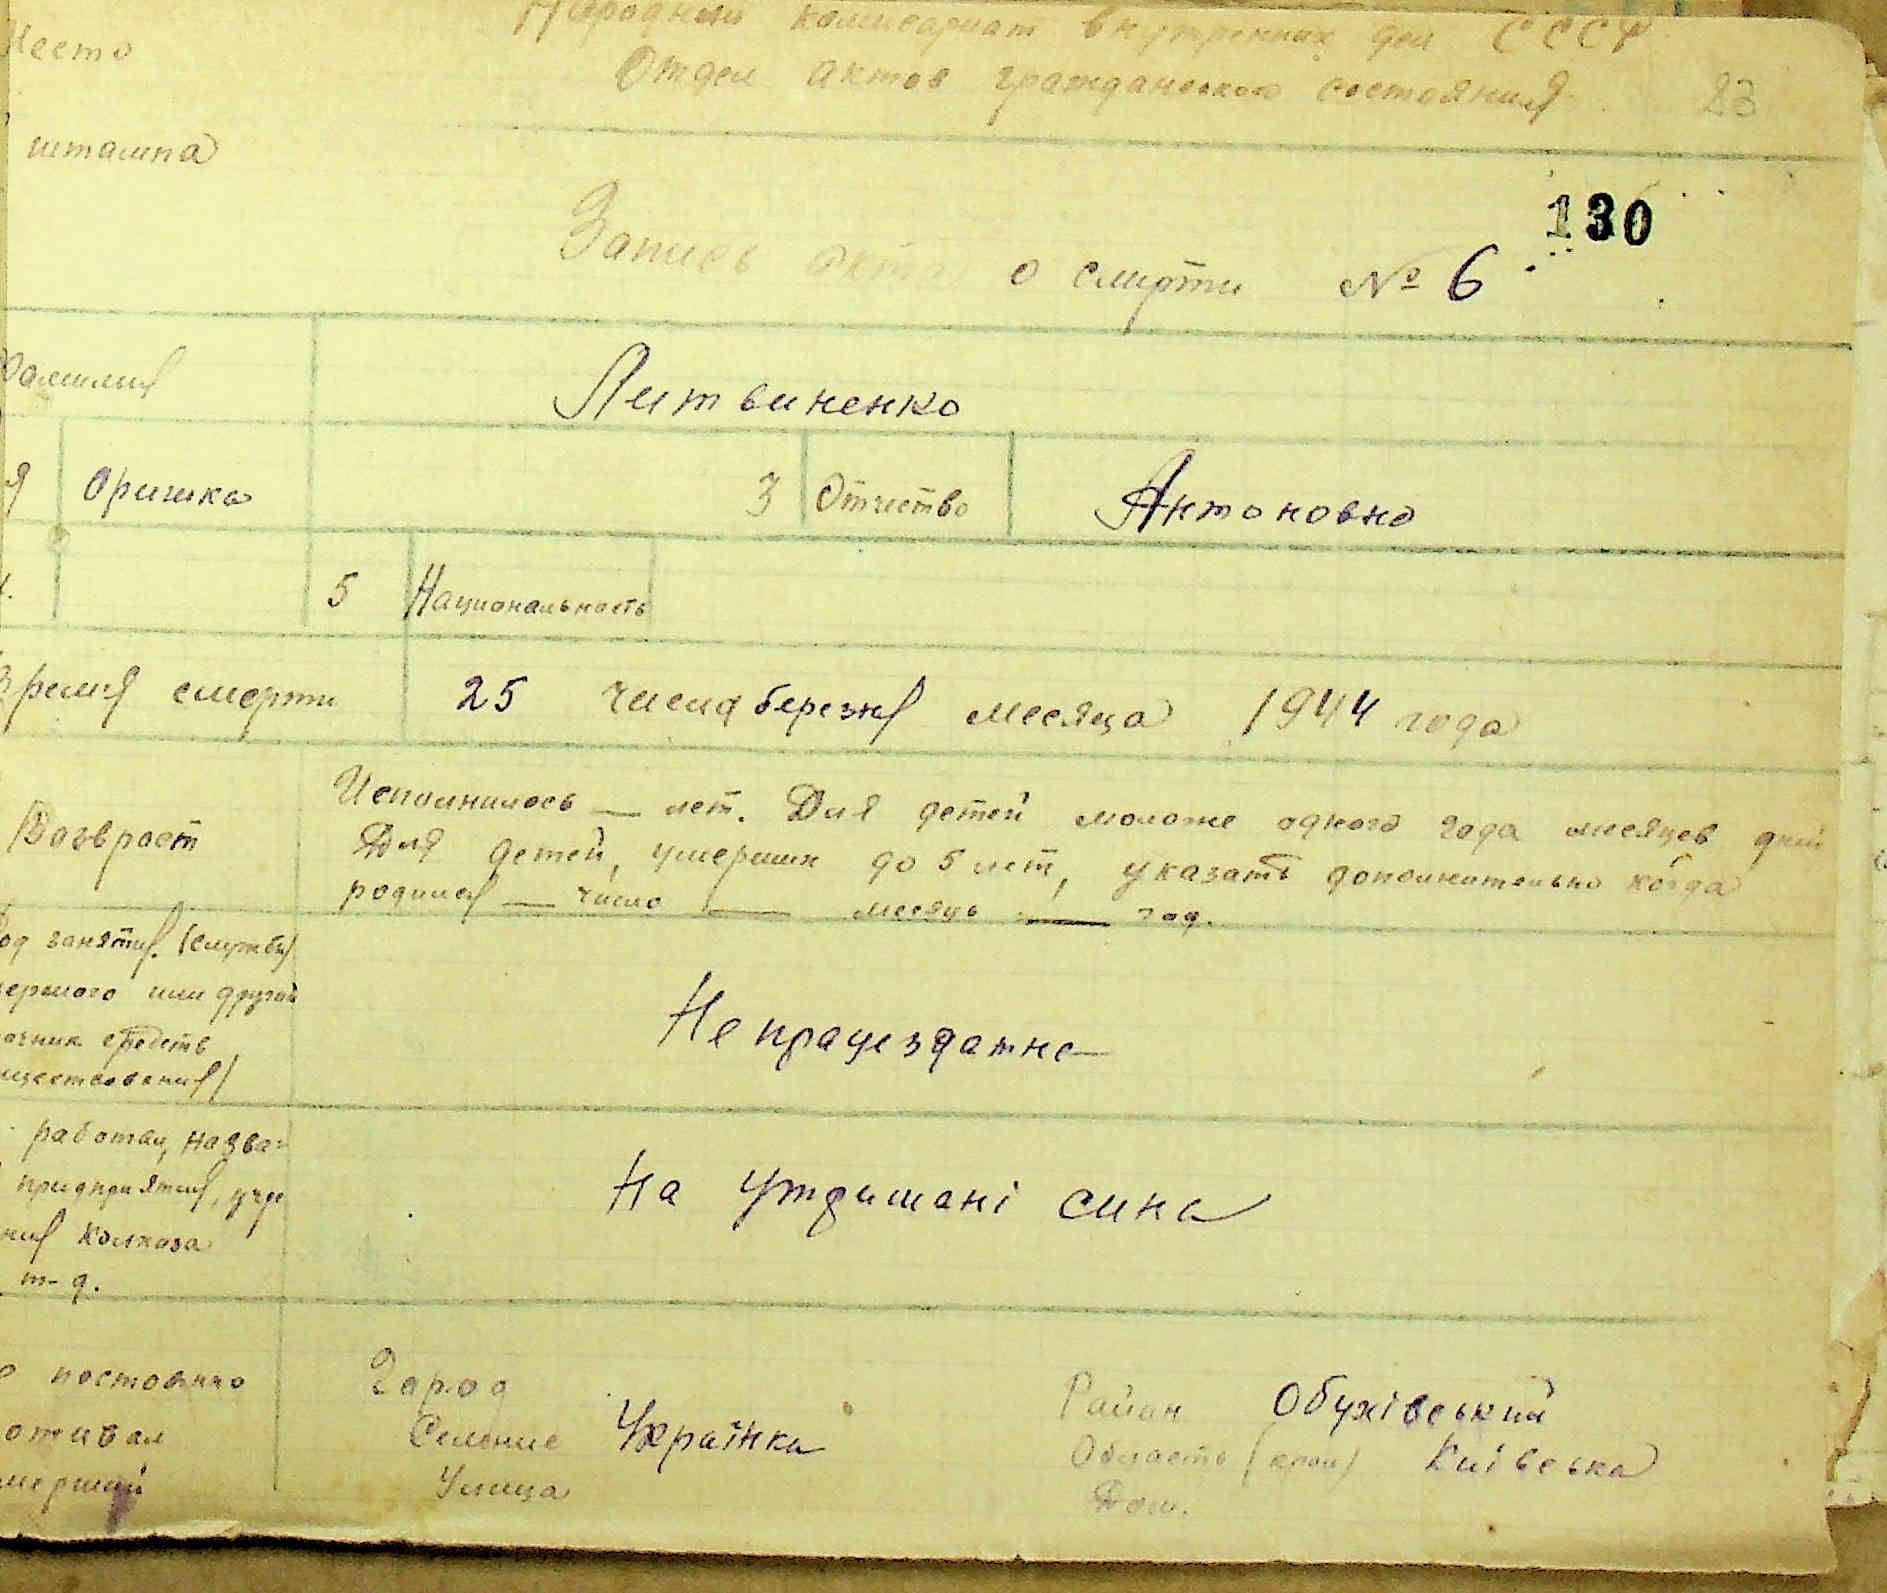 Место
Народный комисариат внутренних дел СССР
Отдел актов гражданского состояния
23
штампа
130
Запись акта о смерти № 6
Фамилия
Литвиненко
я Оришка 3 Отчество Антоновна
5 Национальность
Время смерти 25 числа березня месяца 1944 года
Возврост
Исполнилось — лет. Для детей моложе одного года месяцев дней
Для детей, умерших до 5 лет, указать дополнительно когда
родился — число — месяць — год.
од занятия (службы)
мершого или другой
очник средств
ществования)
Не працездатна
работал, назва-
придприятия, учре
ния колхоза
т-д.
На утримані сина
постоянно
оживал
мерший
Город
Селение Українка
Улица
Район Обухівський
Область (край) Київська
Дом.